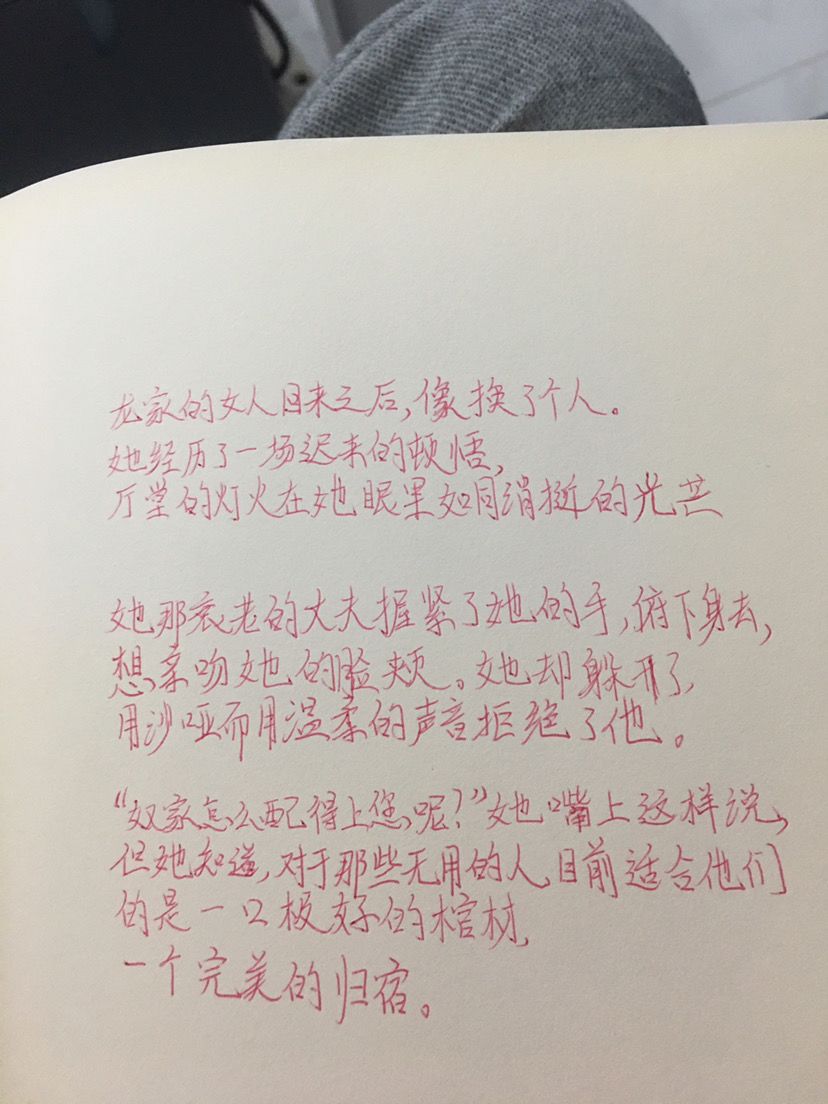 龙家的女人回来之后,像换了个人。
她经历了一场迟来的顿悟,
厅堂的灯火在她眼里如同涓挻的光芒
她那衰老的丈夫握紧了她的手,俯下身去,
想亲吻她的脸颊。她却躲开了,
用沙哑而用温柔的声音拒绝了他。
“奴家怎么配得上您呢?”她嘴上这样说,
但她知道,对于那些无用的人,目前适合他们
的是一口极好的棺材,
一个完美的归宿。